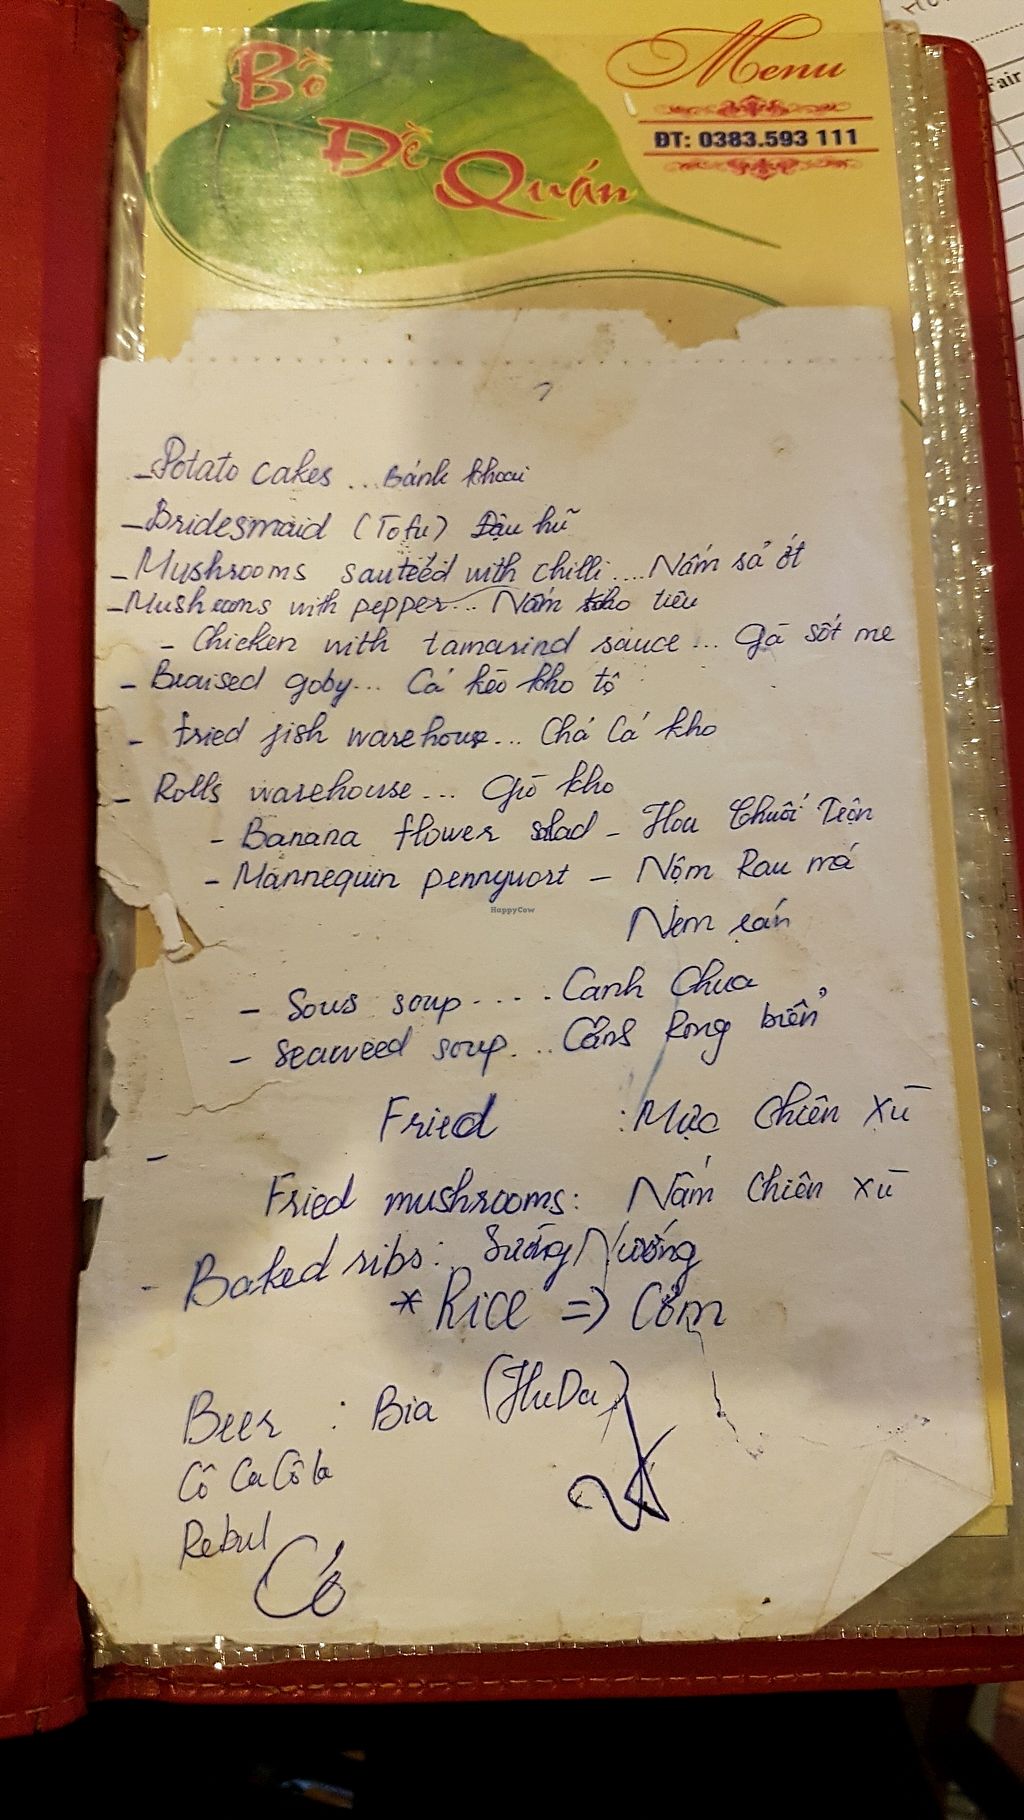 Bồ
Đề
Quán
Menu
ĐT: 0383.593 111
Fair
- Potato cakes ... Bánh khoai
- Bridesmaid (Tofu) Đậu hũ
- Mushrooms sauteéd with chilli .... Nấm sả ớt
- Mushrooms with pepper... Nấm kho tiêu
- Chicken with tamarind sauce ... gà sốt me
- Braised goby... Cá kèo kho tộ
- Fried fish warehouse... Chả Cá kho
- Rolls warehouse ... Giò kho
- Banana flower salad - Hoa Chuối Trộn
- Mannequin pennywort - Nộm Rau má
HappyCow
Nem rán
- Sous soup ..... Canh Chua
- Seaweed soup ... Canh Rong biển
- Fried : Mực Chiên xù
Fried mushrooms: Nấm Chiên xù
- Baked ribs: Sường Nướng
* Rice => Cơm
Beer : Bia (HuDa)
Cô Ca Cô la
Rebul
Có